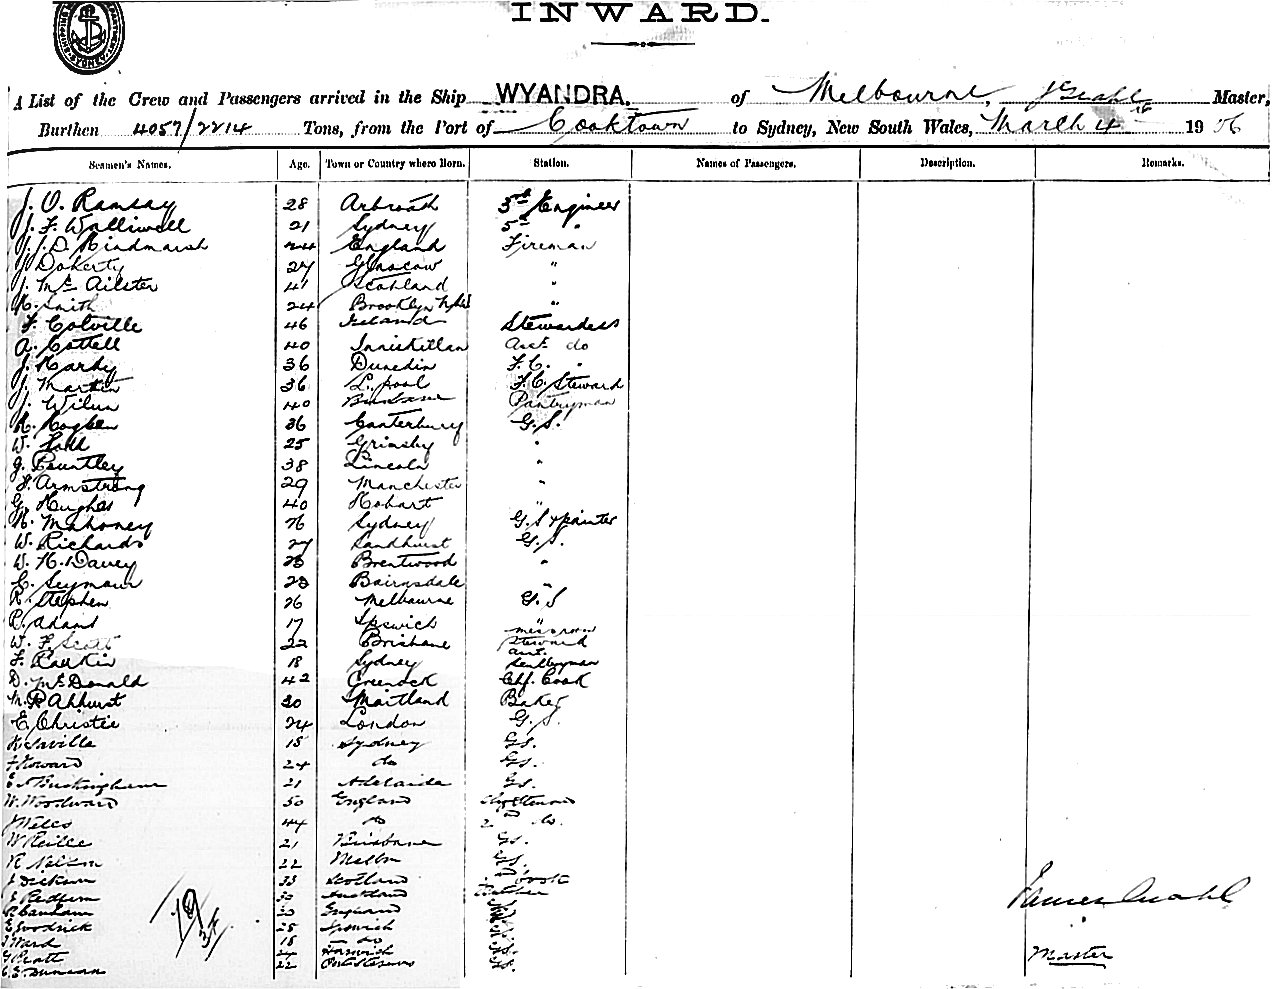 INWARD.
A List of the Crew and Passengers arrived in the Ship WYANDRA. of Melbourne, Master,
Burthen 4057/2214 Tons, from the Port of Cooktown to Sydney, New South Wales, March 4 1906
Seamen's Names. Age. Town or Country where Born. Station. Names of Passengers. Description. Remarks.
J. O. Ramsay 28 Arbroath 3rd Engineer
J. F. Walliwell 21 Sydney 5th "
J. J. D. Hindmarsh 24 England Fireman
J. Doherty 27 Glascow "
J. McAilster 41 Scotland "
H. Smith 24 Brooklyn "
F. Colville 46 Ireland Stewardess
A. Cottell 40 Inniskillan Asst do
J. Harby 36 Dunedin F.C. "
J. Martin 36 L.pool F.C. Steward
J. 40 Brisbane Pantryman
H. 36 Canterbury G.S.
W. 25 Grimsby "
G. Pountley 38 Lincoln "
F. Armstrong 29 Manchester "
G. Hughes 40 Hobart "
H. Mahoney 26 Sydney G.S & painter
W. Richards 27 Sandhurst G.S.
W. H. Davey 23 Brentwood "
C. Seymour 23 Bairnsdale "
R. Stephen 26 Melbourne G.S
P. Adams 17 Ipswich "
W. F. Scott 22 Brisbane messroom Steward
F. Rankin 18 Sydney ant.
D. McDonald 42 Greenock Chf. Cook
M. P. Ahhurst 30 Maitland Baker
E. Christie 24 London G.S.
H. Saville 18 Sydney GS.
J Howard 24 do GS.
E A Buckingham 21 Adelaide GS.
W. Woodward 50 England
J Wells 44 do 2nd do.
W Reilly 21 Brisbane GS.
R Nelson 22 Melbn GS.
J Dickson 33 Scotland Cook
E Redfern 30 Auckland Butcher
30 England
E Goodrick 25 Ipswich
J Ward 18 do
G Pratt 24 Harwich GS.
C. E. Duncan 22 GS.
19
Master